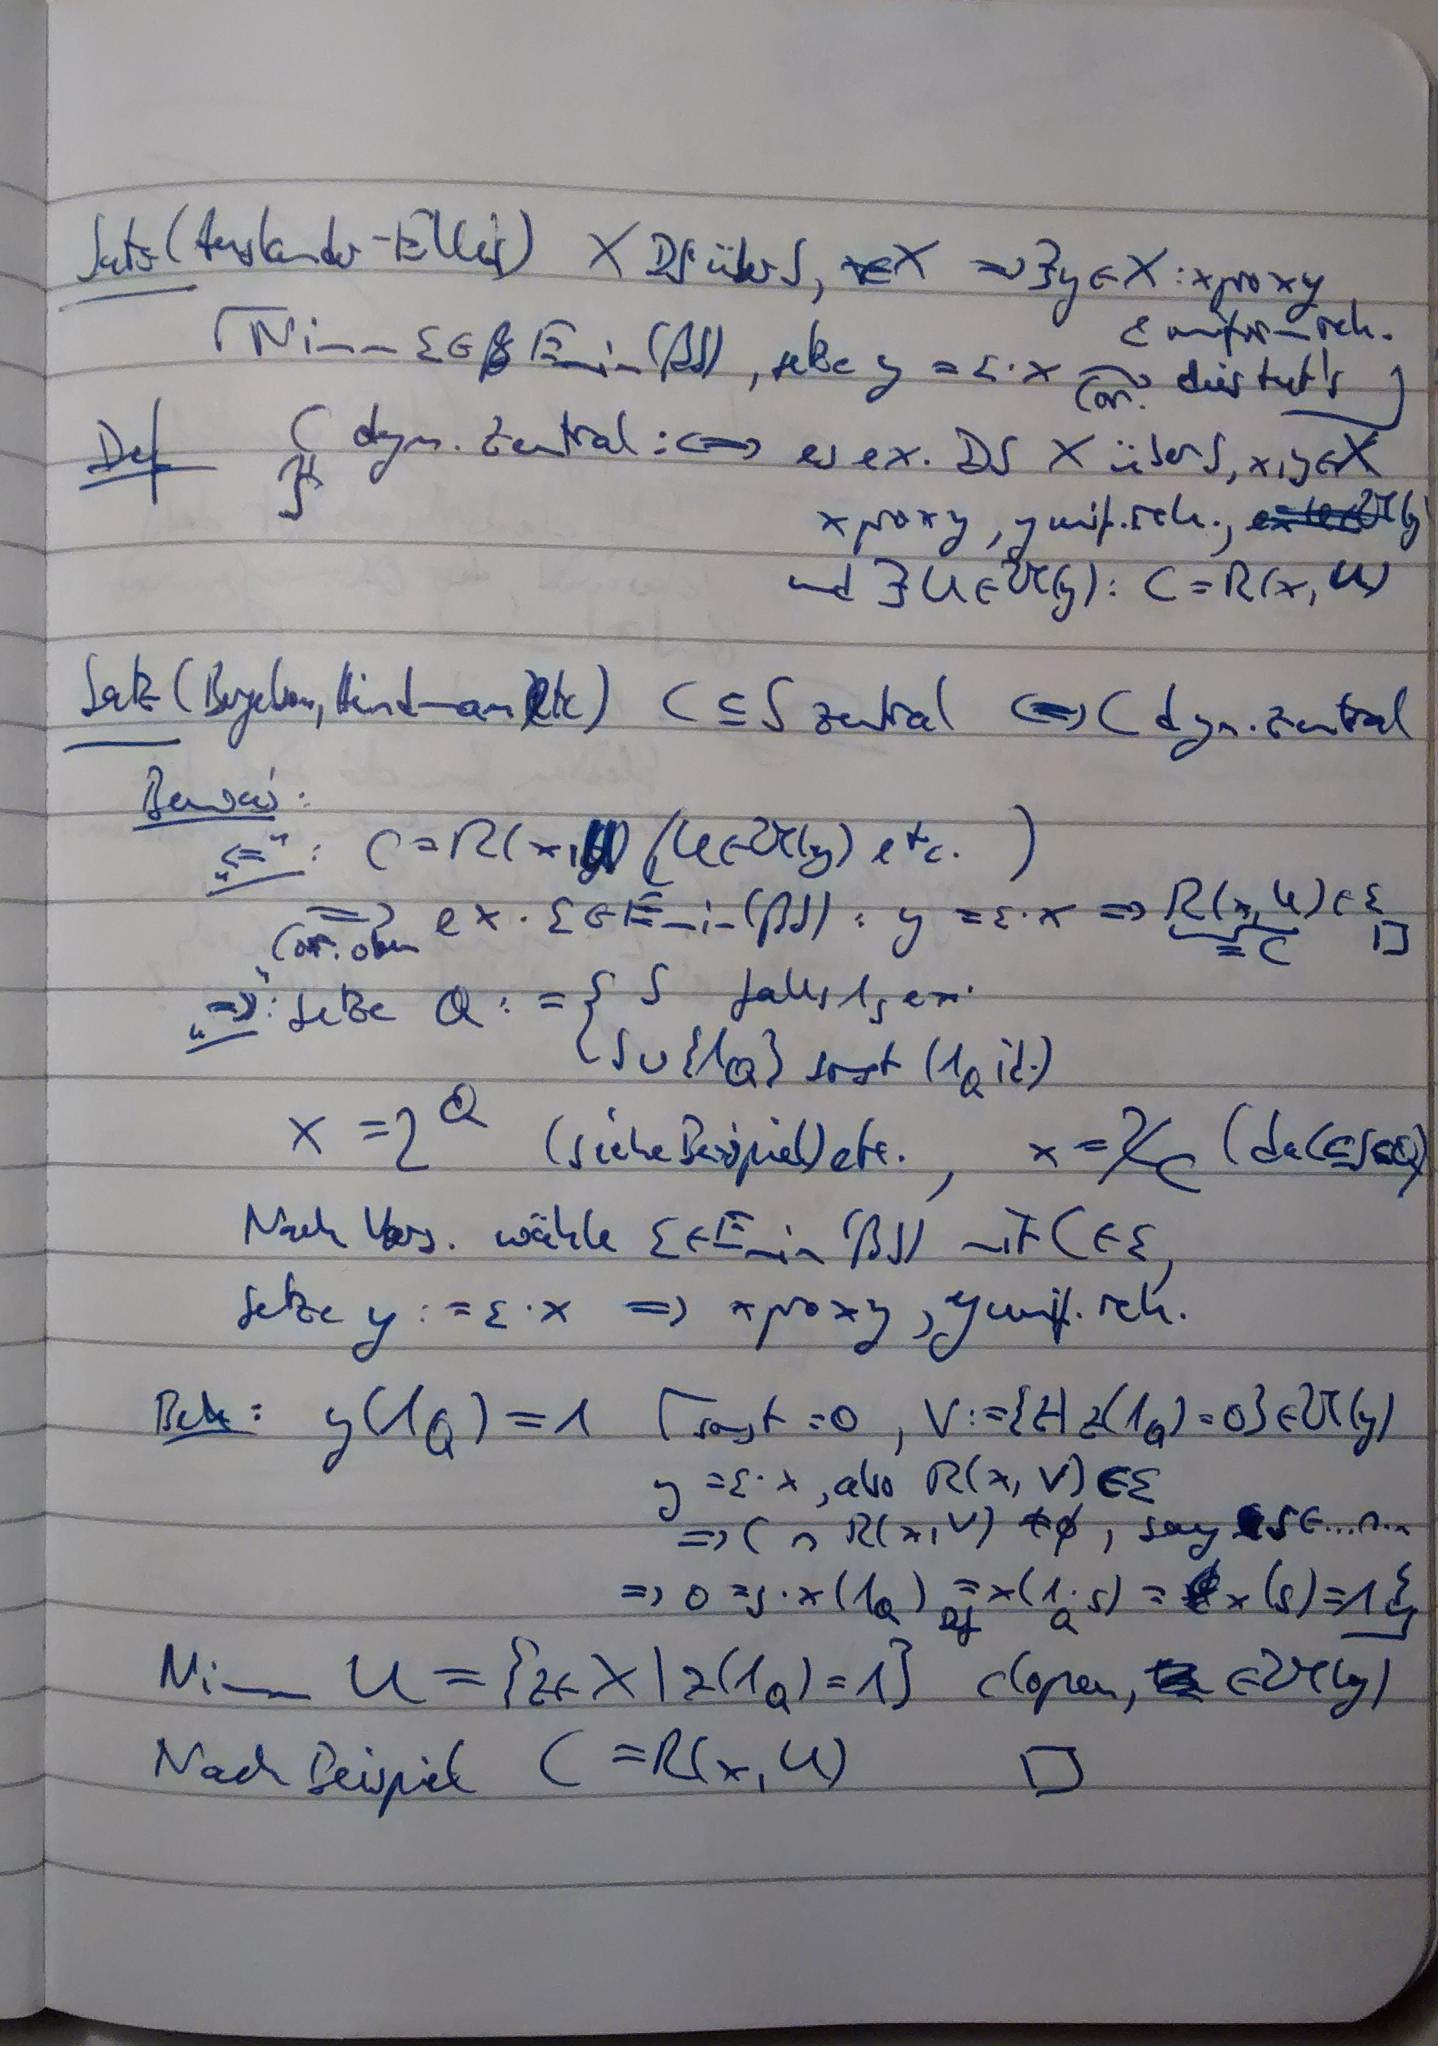 Satz (Auslander-Ellis) X DS über S, x∈X ⇒ ∃y∈X: x prox y
& unif. rek.
⌈Nimm ε∈ E_min(βS), setze y = ε·x Cor. dies tut's⌋
Def C dyn. zentral :⇔ es ex. DS X über S, x,y∈X
S
x prox y, y unif. rek.,
und ∃U∈𝔘(y): C = R(x, U)
Satz (Bergelson, Hindman etc) C ⊆ S zentral ⇔ C dyn. zentral
Beweis:
„⇐": C = R(x,U) (U∈𝔘(y) etc.)
⇒ Cor. oben ex. ε∈E_min(βS): y = ε·x ⇒ R(x,U)∈ε □
= C
„⇒": Setze Q := { S falls 1_S ex.
S∪{1_Q} sonst (1_Q id.)
X = 2^Q (siehe Beispiel) etc., x = χ_C (da C⊆S⊆Q)
Nach Vors. wähle ε∈E_min(βS) mit C∈ε,
Setze y := ε·x ⇒ x prox y, y unif. rek.
Beh: y(1_Q) = 1 ⌈sonst = 0, V := {z | z(1_Q) = 0}∈𝔘(y)
y = ε·x, also R(x, V)∈ε
⇒ C ∩ R(x,V) ≠ ∅, say s∈...∩..
⇒ 0 = s·x(1_Q) =_Def x(1_Q·s) = x(s) = 1 ↯⌋
Nimm U = {z∈X | z(1_Q) = 1} clopen, ∈𝔘(y)
Nach Beispiel C = R(x, U) □